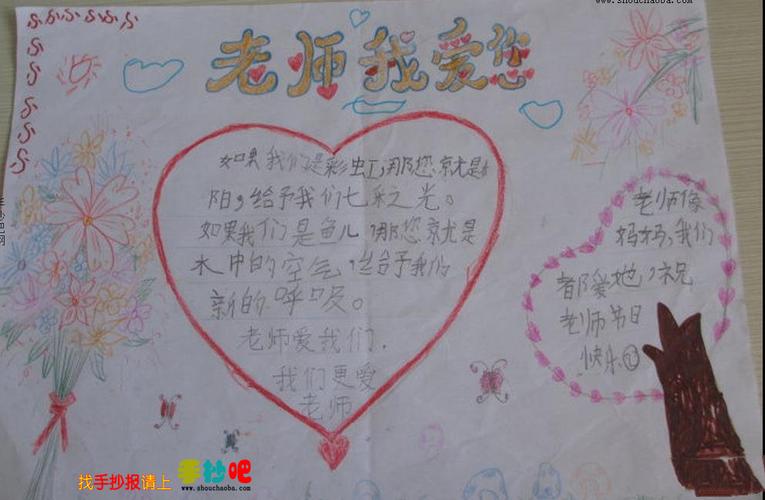 老师我爱您
如果我们是彩虹,那您就是太
阳,给予我们七彩之光。
如果我们是鱼儿 那您就是
水中的空气,给予我们
新的呼吸。
老师爱我们.
我们更爱
老师
老师像
妈妈,我们
都爱她,祝
老师节日
快乐
找手抄报请上 手抄吧
www.shouchaoba.com
www.shouchaoba.com